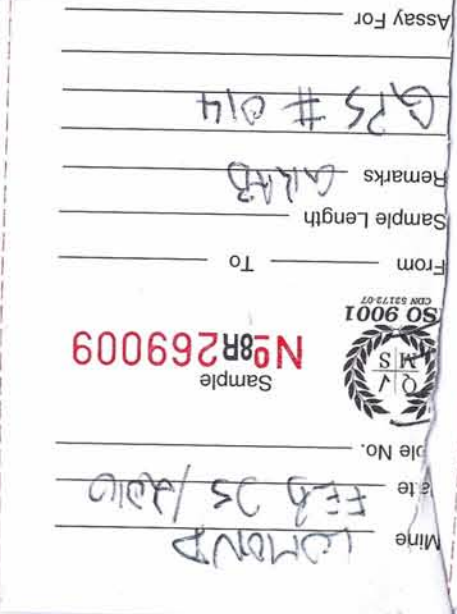 Mine LOMOND
ate FEB 25/2010
ole No.
Q M S
Sample
Nº 8R269009
SO 9001
CDN 52172-07
From To
Sample Length
Remarks GRAB
GPS # 014
Assay For